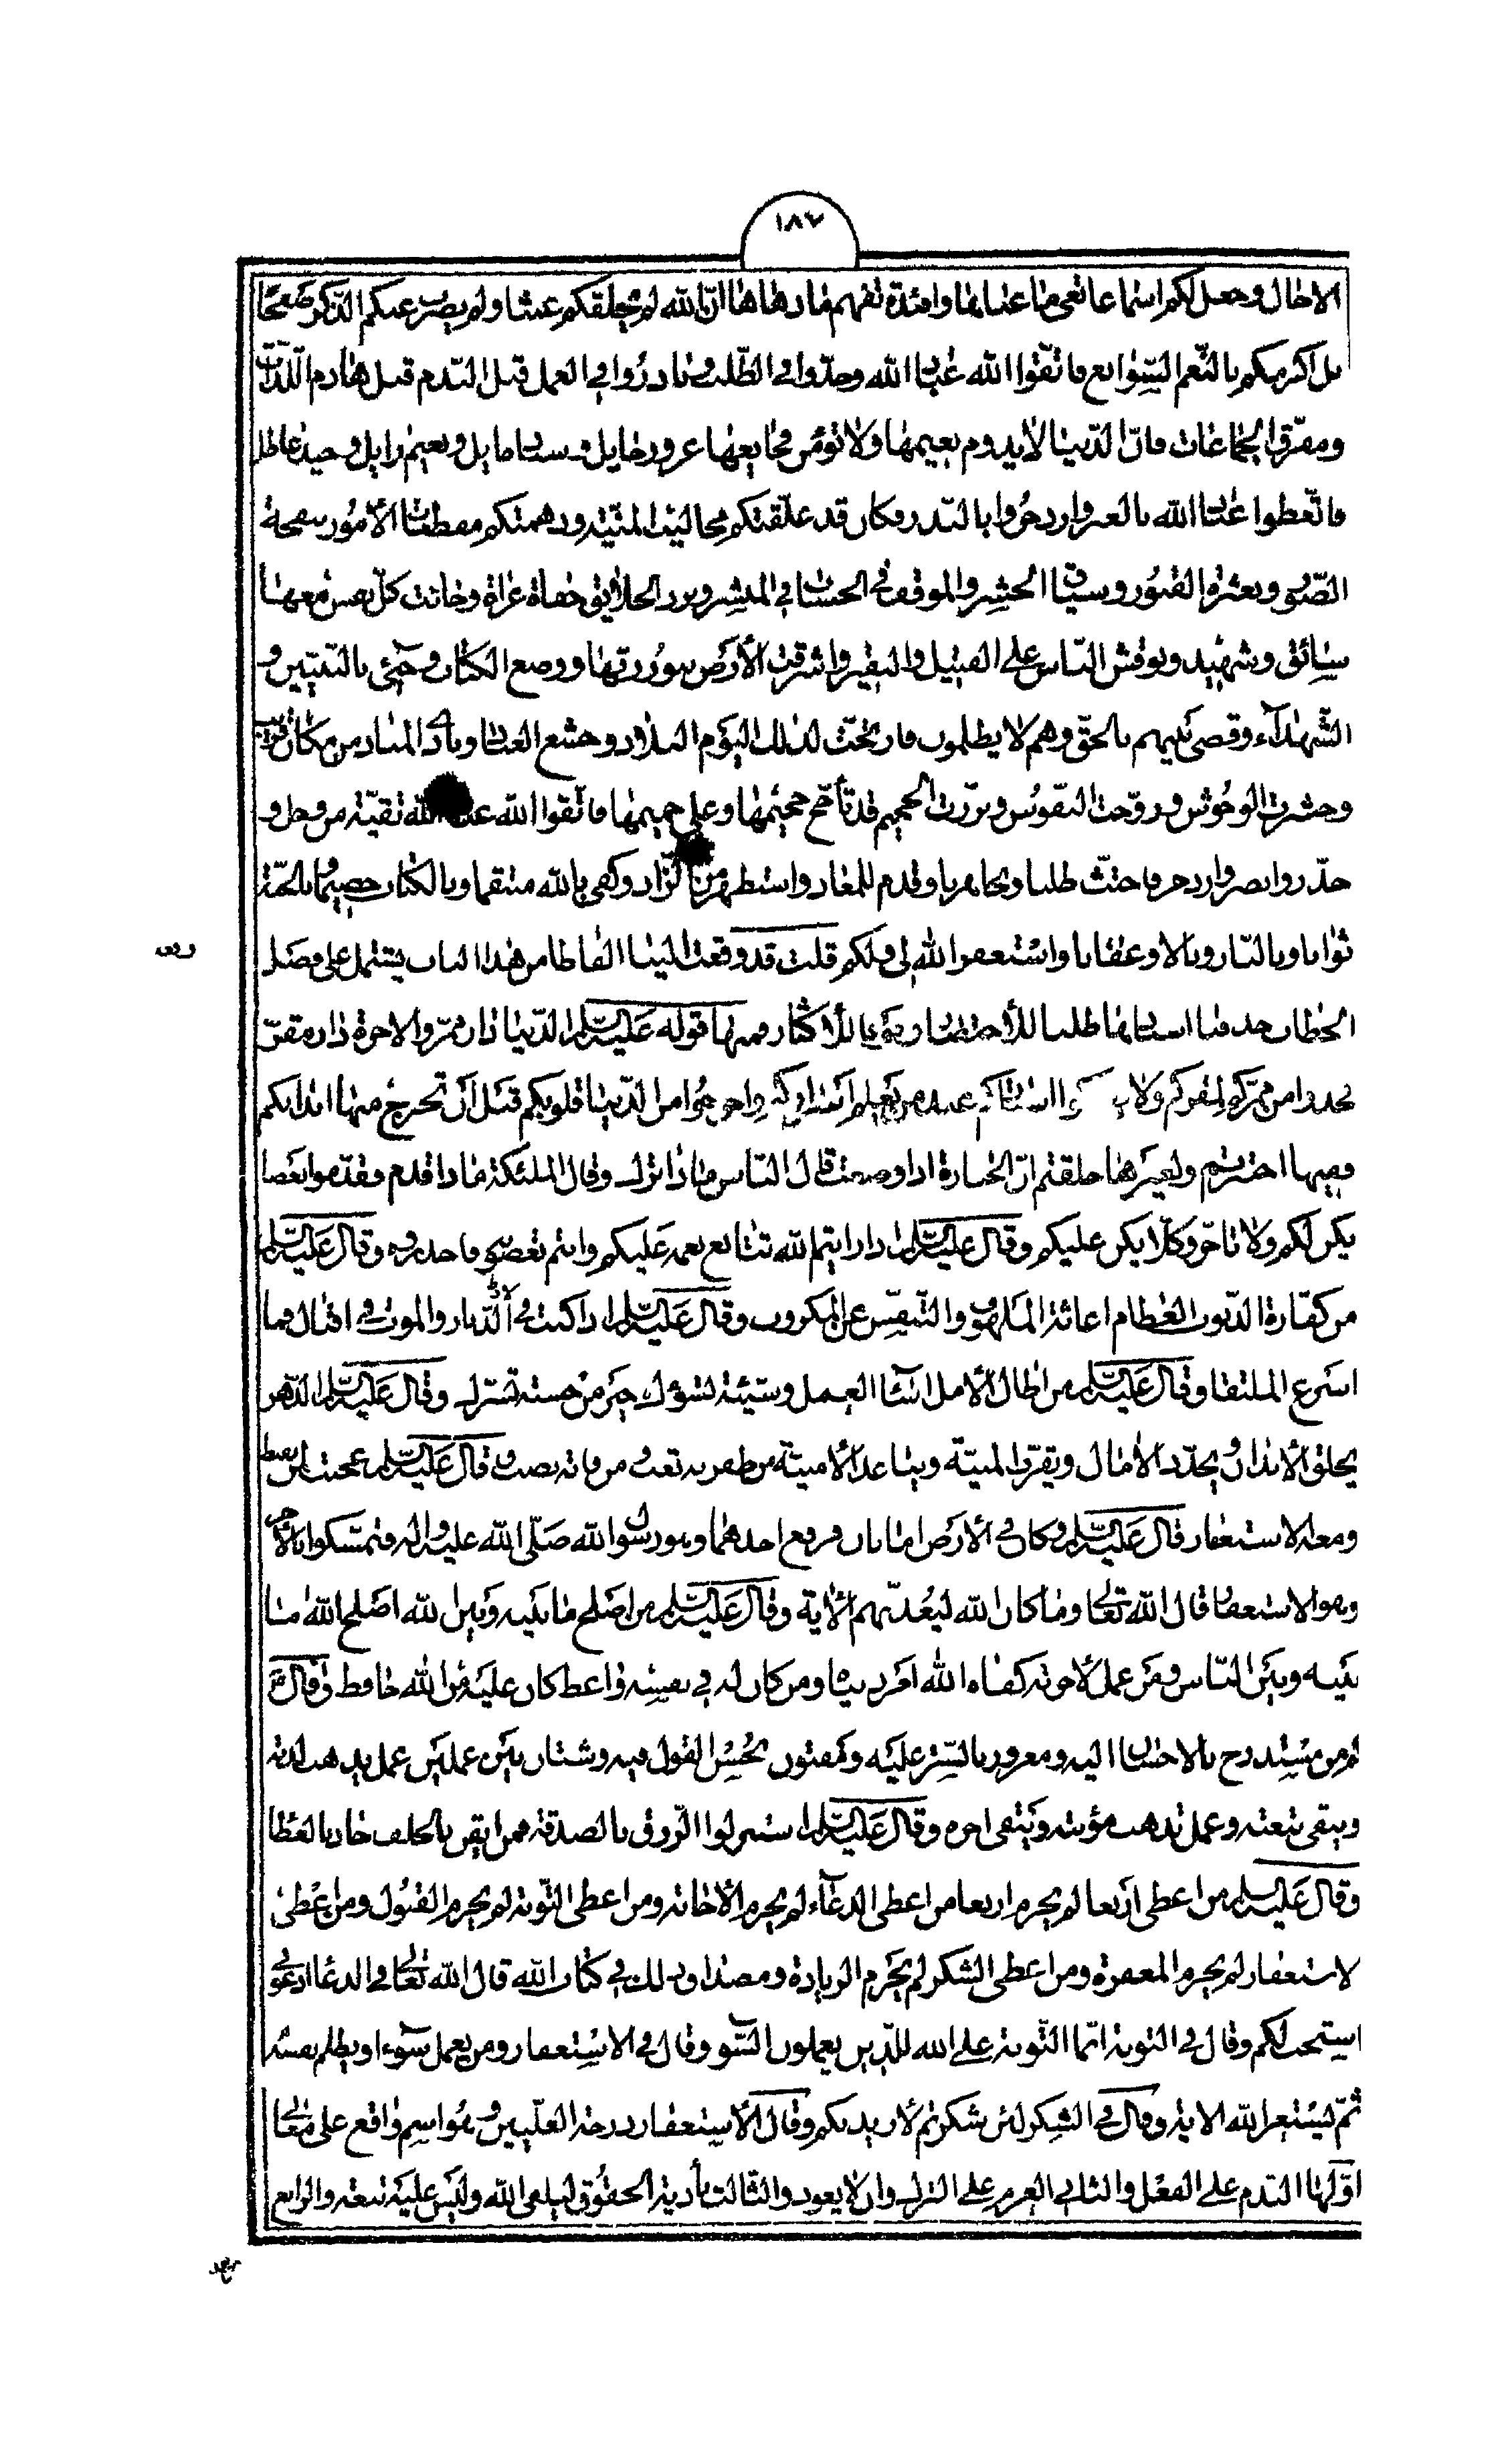 ١٨٧
الاجال وجعل لكم اسماعا تعي ما عناها وافئدة تفهم ما دهاها ان الله لم يخلقكم عبثا ولم يضرب عنكم الذكر صفحا
بل اكرمكم بالنعم السوابغ فاتقوا الله عباد الله وجدوا في الطلب وبادروا في العمل قبل الندم قبل هادم اللذات
ومفرق الجماعات فان الدنيا لا يدوم نعيمها ولا تؤمن فجايعها غرور حايل وسناد مايل ونعيم زايل وجيد عاطل
فاتعظوا عباد الله بالعبر وازدجروا بالنذر فكان قد علقتكم مخاليب المنية ودهمتكم مفظعات الأمور بنفخة
الصور وبعثرة القبور وسياق الحشر والموقف في الحساب في المنشر وبرز الخلايق حفاة عراة وجاءت كل نفس معها
سائق وشهيد ونوقش الناس على الفتيل والنقير واشرقت الأرض بنور ربها ووضع الكتاب وجيئ بالنبيين و
الشهداء وقضي بينهم بالحق وهم لا يظلمون فارتجت لذلك اليوم البلاد وخشع العباد وناد المناد من مكان قريب
وحشرت الوحوش وزوجت النفوس وبرزت الجحيم قد تأجج جحيمها وغلي حميمها فاتقوا الله عباد الله تقية من وجل و
حذر وابصر وازدجر فاحتث طلبا ونجا هربا وقدم للمعاد واستظهر من الزاد وكفى بالله منتقما وبالكتاب خصيما وبالجنة
ثوابا وبالنار وبالا وعقابا واستغفر الله لي ولكم قلت قد وقعت الينا الفاظا من هذا الباب يشتمل على فصل
الخطاب حذفنا اسانيدها طلبا للأختصار ومنها قوله عليه السلام الدنيا دار ممر والاخرة دار مقر
فخذوا من ممركم لمقركم ولا واخرجوا من الدنيا قلوبكم قبل أن تخرج منها ابدانكم
ففيها اختبرتم ولغيرها خلقتم ان الجنازة اذا وضعت قال الناس ماذا ترك وقال الملئكة ماذا قدم فقدموا بعضا
يكن لكم ولا تاخروا كلا يكن عليكم وقال عليه السلام اذا رايتم الله تتابع نعمه عليكم وانتم تعصوه فاحذروه وقال عليه السلام
من كفارة الذنوب العظام اغاثة الملهوف والتنفيس عن المكروب وقال عليه السلام اذا كنت في أدبار والموت في اقبال فما
اسرع الملتقا وقال عليه السلام من اطال الأمل اساء العمل وسيئة تسؤك خير من حسنة تسرك وقال عليه السلام الدهر
يخلق الأبدان ويجدد الأمال ويقرب المنية ويباعد الأمنية من ظفر به تعب من فاته نصب وقال عليه السلام عجبت لمن يقنط
ومعه الاستغفار قال عليه السلام وكان في الأرض امانان فرفع احدهما وهو رسول الله صلى الله عليه واله فتمسكوا بالأخر
وهو الاستغفار قال الله تعالى وما كان الله ليعذبهم الأية وقال عليه السلام من اصلح ما بينه وبين الله اصلح الله ما
بينه وبين الناس ومن عمل لأخرته كفاه الله امر دنياه ومن كان له في نفسه واعظ كان عليه من الله حافظ وقال ع
كم من مستدرج بالاحسان اليه ومغرور بالستر عليه ومفتون بحسن القول فيه وشتان بين عملين عمل يذهب لذته
ويبقى تبعته وعمل تذهب مؤنته ويبقى اجره وقال عليه السلام استنزلوا الرزق بالصدقة فمن ايقن بالخلف جاد بالعطا
وقال عليه السلام من اعطى أربعا لم يحرم اربعا من اعطى الدعاء لم يحرم الأجابة ومن اعطى التوبة لم يحرم القبول ومن اعطى
لاستغفار لم يحرم المغفرة ومن اعطى الشكر لم يحرم الزيادة ومصداق ذلك في كتاب الله قال الله تعالى في الدعا ادعوني
استجب لكم وقال في التوبة انما التوبة على الله للذين يعملون السوء وقال في الاستغفار ومن يعمل سوءا او يظلم نفسه
ثم يستغفر الله الاية وقال في الشكر لئن شكرتم لأزيدنكم وقال الأستغفار درجة العليين وهو اسم واقع على معاني
اولها الندم على الفعل والثاني العزم على الترك وان لا يعود والثالث تأدية الحقوق ليلقى الله وليس عليه تبعة والرابع